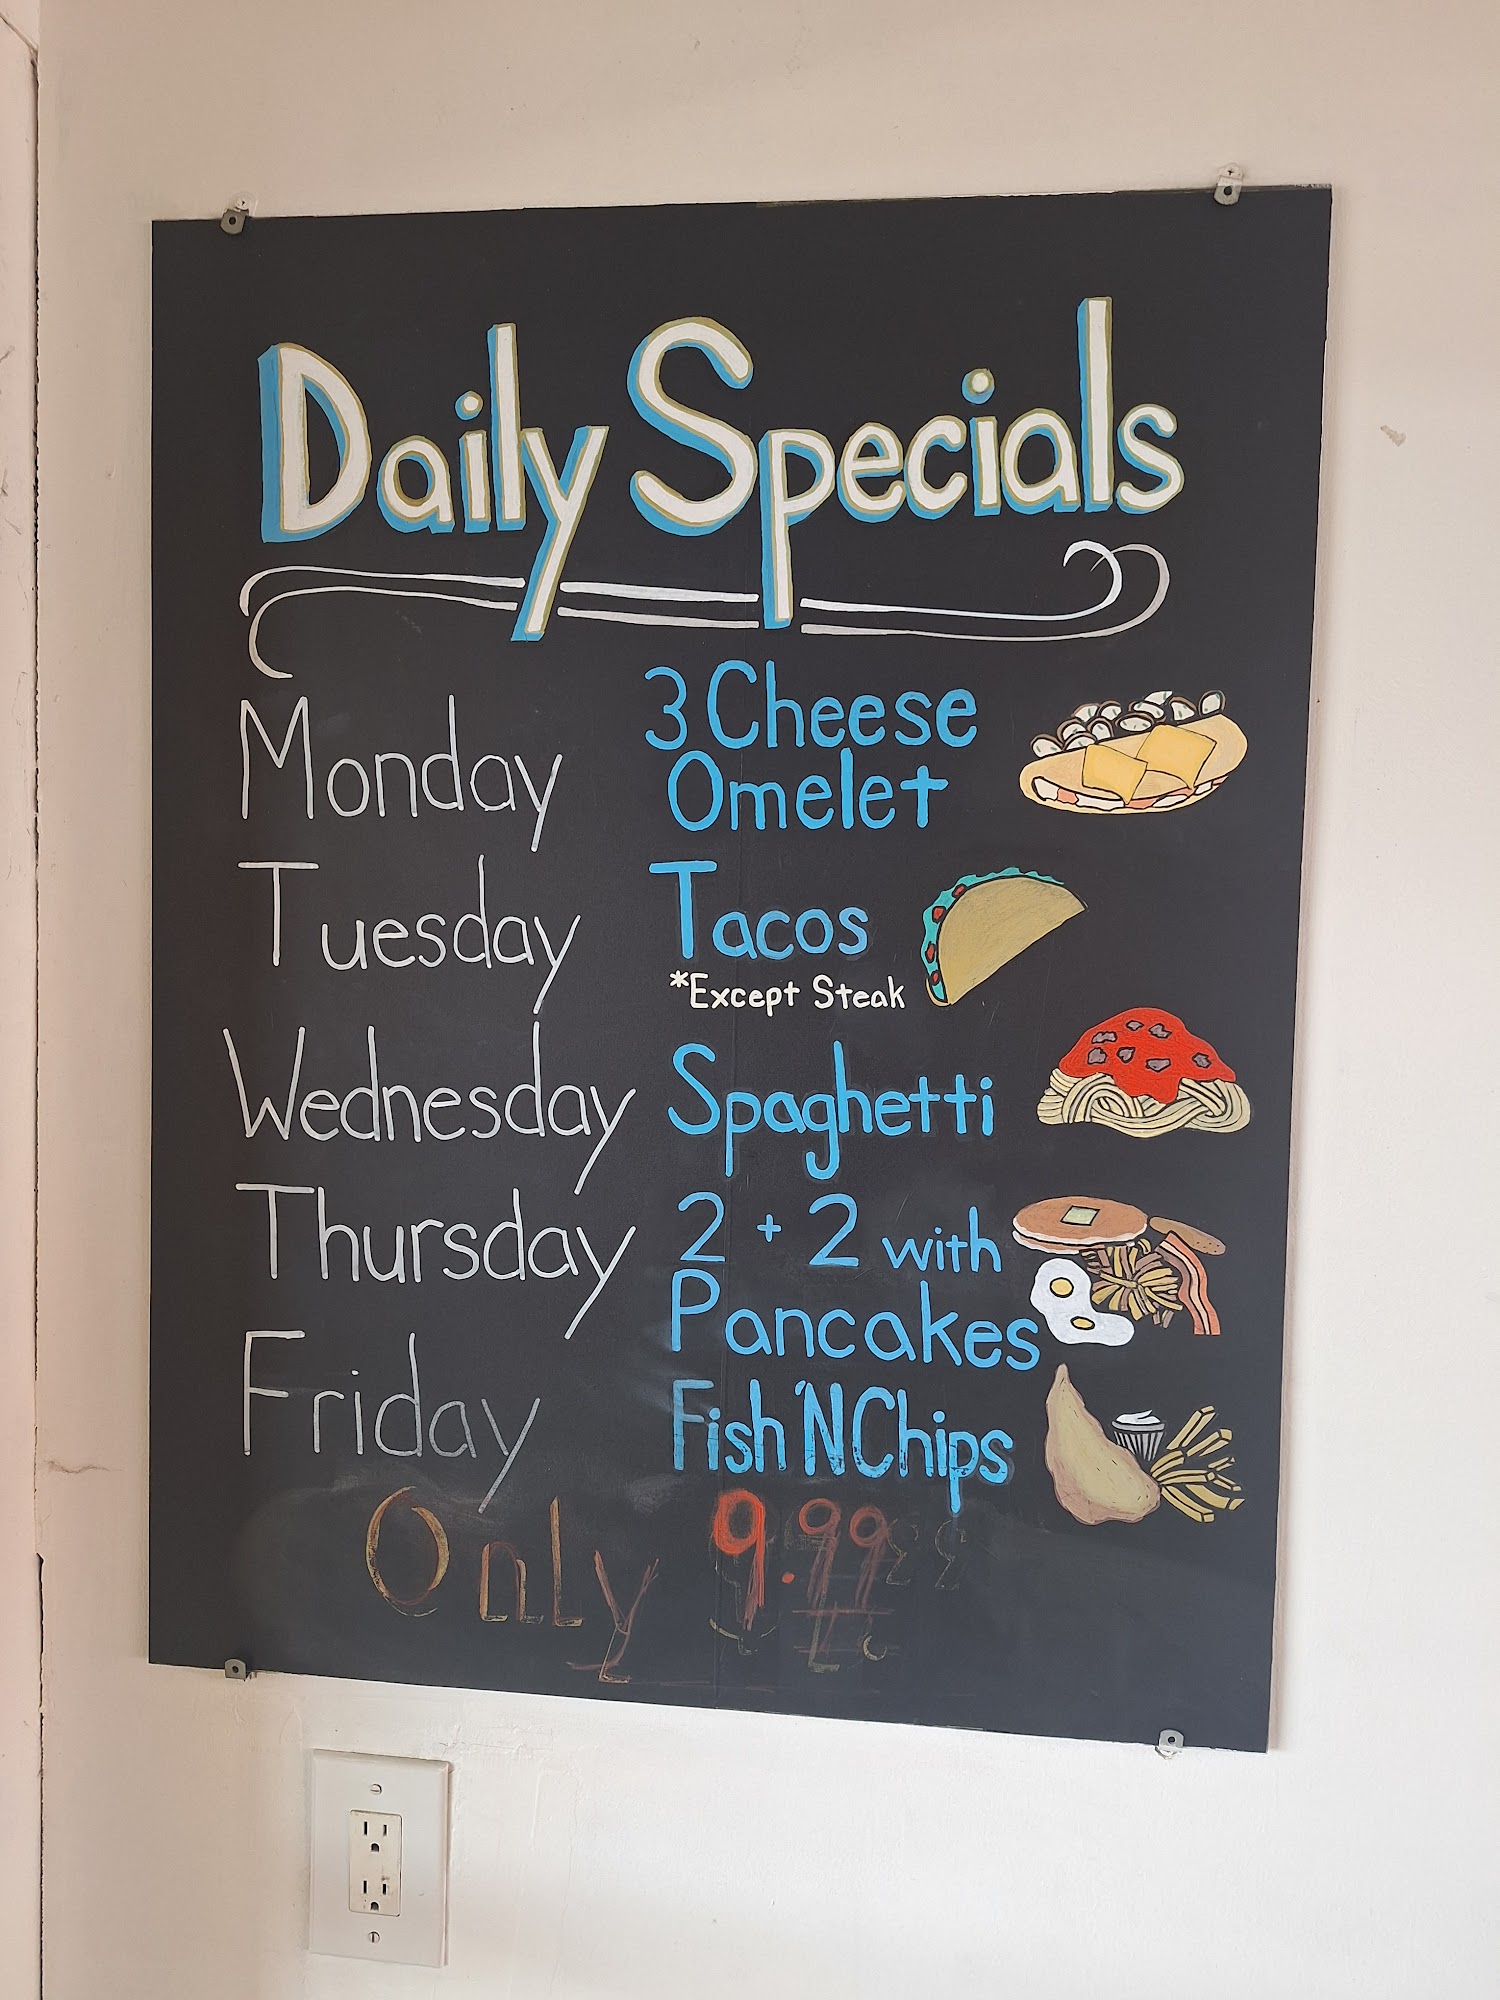 Daily Specials
Monday 3 Cheese
Omelet
Tuesday Tacos
*Except Steak
Wednesday Spaghetti
Thursday 2 + 2 with
Pancakes
Friday Fish 'N Chips
Only 9.99